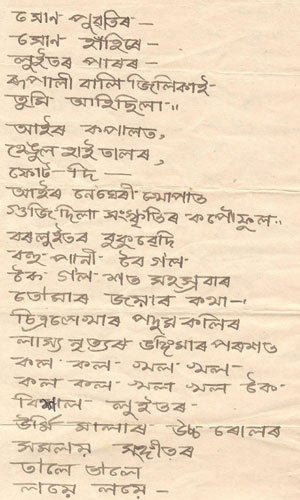 সোণ পুৱতিৰ —
সোণ হাঁহিৰে —
লুইতৰ পাৰৰ —
ৰূপালী বালি জিলিকাই
তুমি আহিছিলা —"
আইৰ কপালত,
হেঙুল হাইতালৰ,
ফোঁট দি —
আইৰ নেঘেৰী খোপাত
গুজি দিলা সংস্কৃতিৰ কপৌফুল"
বৰলুইতৰ বুকুৱেদি
বহু পানী বৈ গল
কৈ গল শত সহস্ৰবাৰ
তোমাৰ জন্মৰ কথা —"
চিত্ৰলেখাৰ পদুম কলিৰ
লাস্য নৃত্যৰ ভঙ্গিমাৰ পৰশত
কল কল খল খল —
কল কল খল খল কৈ
বিশাল লুইতৰ
ঊৰ্মি মালাৰ উচ্চ ৰোলৰ
সমলয় সঙ্গীতৰ
তালে তালে
লয়ে লয়ে —